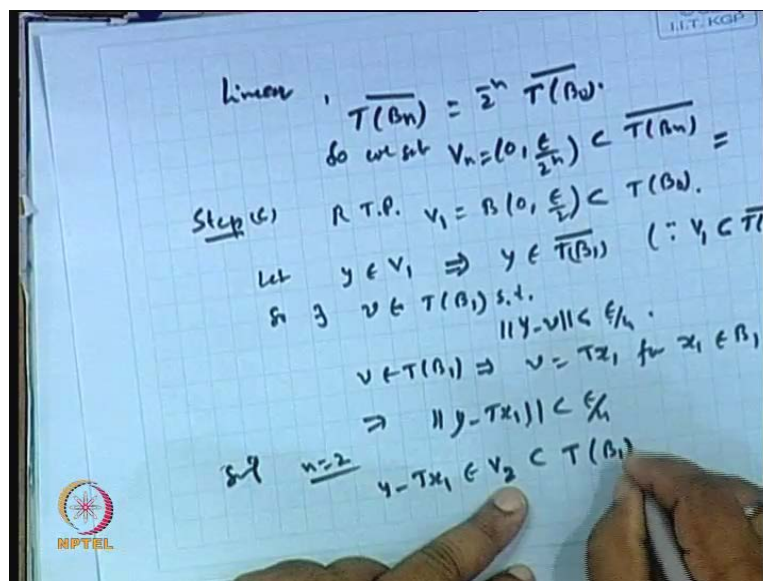 I.I.T. KGP
Linear , T(B̅n̅) = 2̄ⁿ \overline{T(B₀)}.
So we set Vₙ = (0, ε/2ⁿ) ⊂ \overline{T(Bₙ)} =
Step (c) R.T.P. V₁ = B(0, ε/2) ⊂ T(B₀).
Let y ∈ V₁ ⇒ y ∈ \overline{T(B₁)} (∵ V₁ ⊂ \overline{T(
So ∃ v ∈ T(B₁) s.t.
||y-v|| < ε/4.
v ∈ T(B₁) ⇒ v = Tx₁ for x₁ ∈ B₁
⇒ ||y-Tx₁|| < ε/4
n=2 y-Tx₁ ∈ V₂ ⊂ T(B₁)
NPTEL